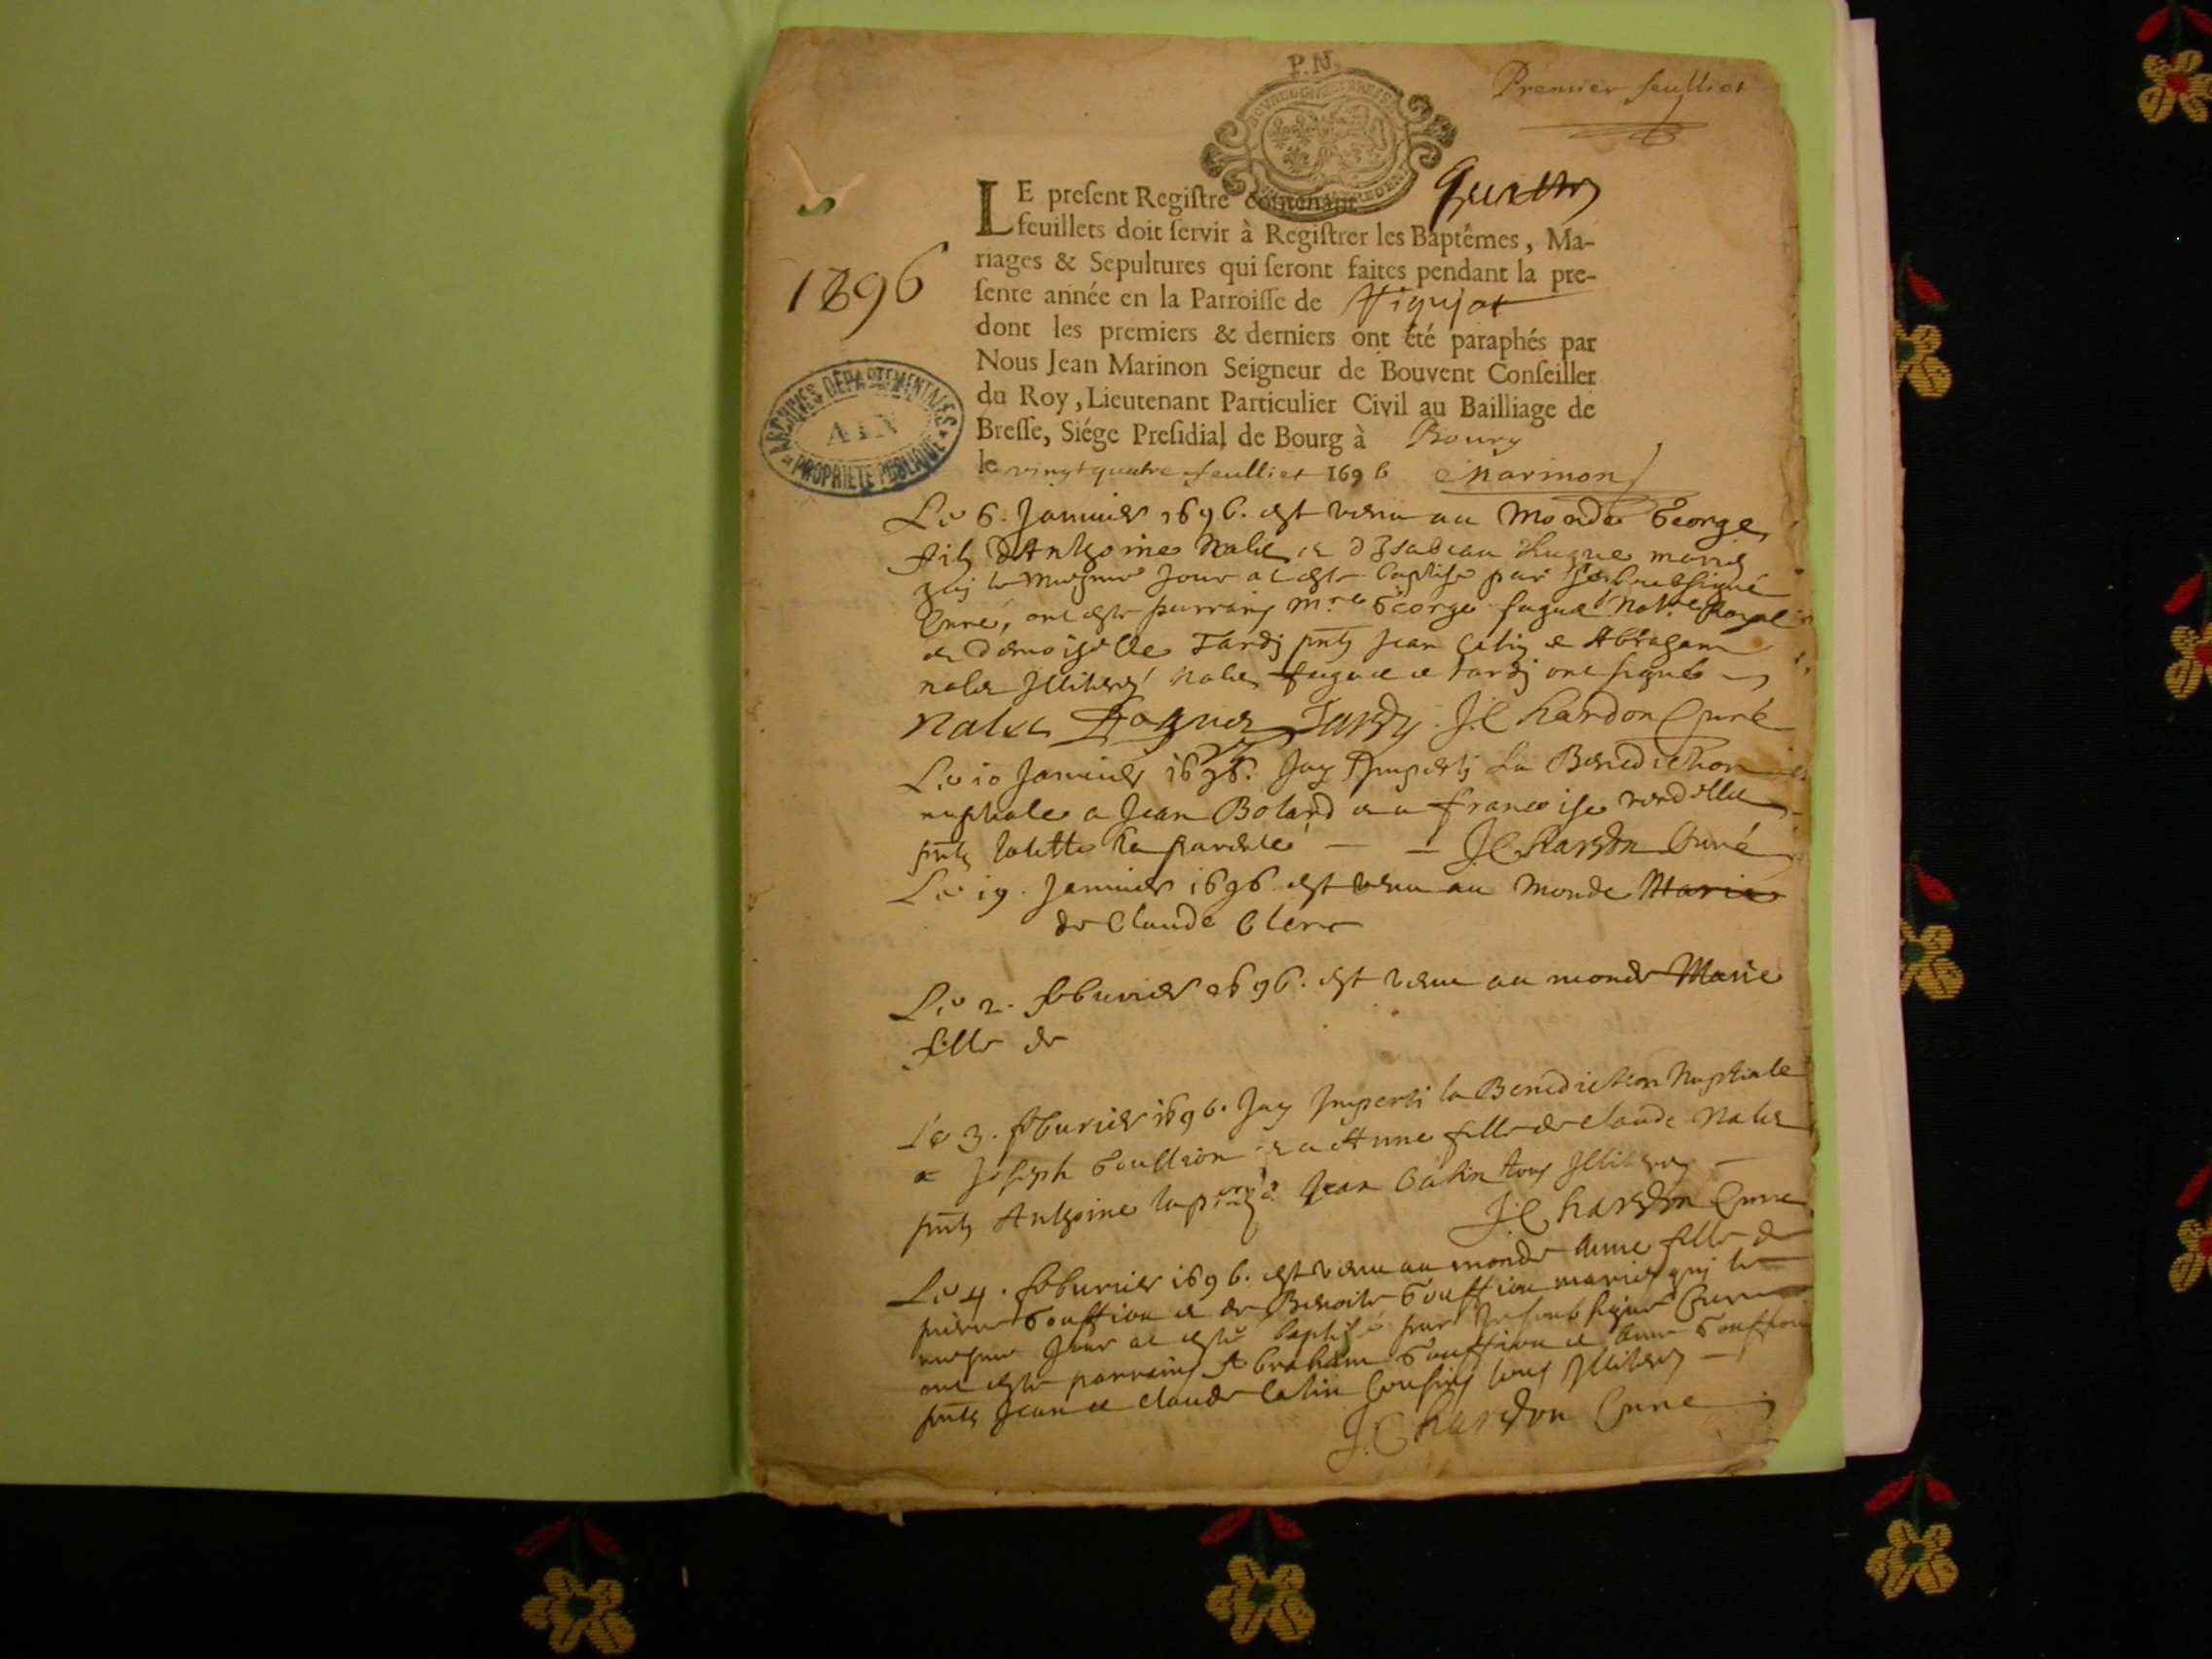 P.N.
Premier feulliet
LE preſent Regiſtre contenant
feuillets doit ſervir à Regiſtrer les Baptêmes, Ma-
riages & Sepultures qui ſeront faites pendant la pre-
1696
ſente année en la Parroiſſe de
dont les premiers & derniers ont été paraphés par
Nous Jean Marinon Seigneur de Bouvent Conſeiller
du Roy, Lieutenant Particulier Civil au Bailliage de
Breſſe, Siége Preſidial de Bourg à Bourg
le vingt quatre feulliet 1696 Marinon
ARCHIVES DÉPARTEMENTALES
AIN
PROPRIÉTÉ PUBLIQUE
Le 6. Januier 1696. est venu au Monde George
fils D'Anthoine Nalet et D'Isabeau mariés
qui le mesme Jour a esté baptisé par Je soubsigné
Curé, ont esté parrains m.re George Not.re Royal
et Demoiselle Tardy pnts Jean Catin et Abraham
nalet Illiterés nalet et tardy ont signés
Nalet Tardy J. Chardon Curé
Le 10 Januier 1696. Jay Imperti La Benediction
nuptiale a Jean Bolard et a francoise
pnts la parenté — — J. Chardon Curé
Le 19. Januier 1696 est venu au Monde Marie
de Claude Clerc
Le 2. feburier 1696. est venu au monde Marie
fille de
Le 3. feburier 1696. Jay Imperti la Benediction Nuptiale
a Joseph Gouttion et a Anne fille de Claude Nalet
pnts Anthoine Jean Catin tous Illiterés —
J. Chardon Curé
Le 4. feburier 1696. est venu au monde Anne fille de
pierre Gouttion et de Benoite Gouttion mariés qui le
mesme Jour a esté baptisé par Je soubsigné Curé
ont esté parrains Abraham Gouttion et Anne Gouttion
pnts Jean et Claude Catin cousins tous Illiterés —
J. Chardon Curé